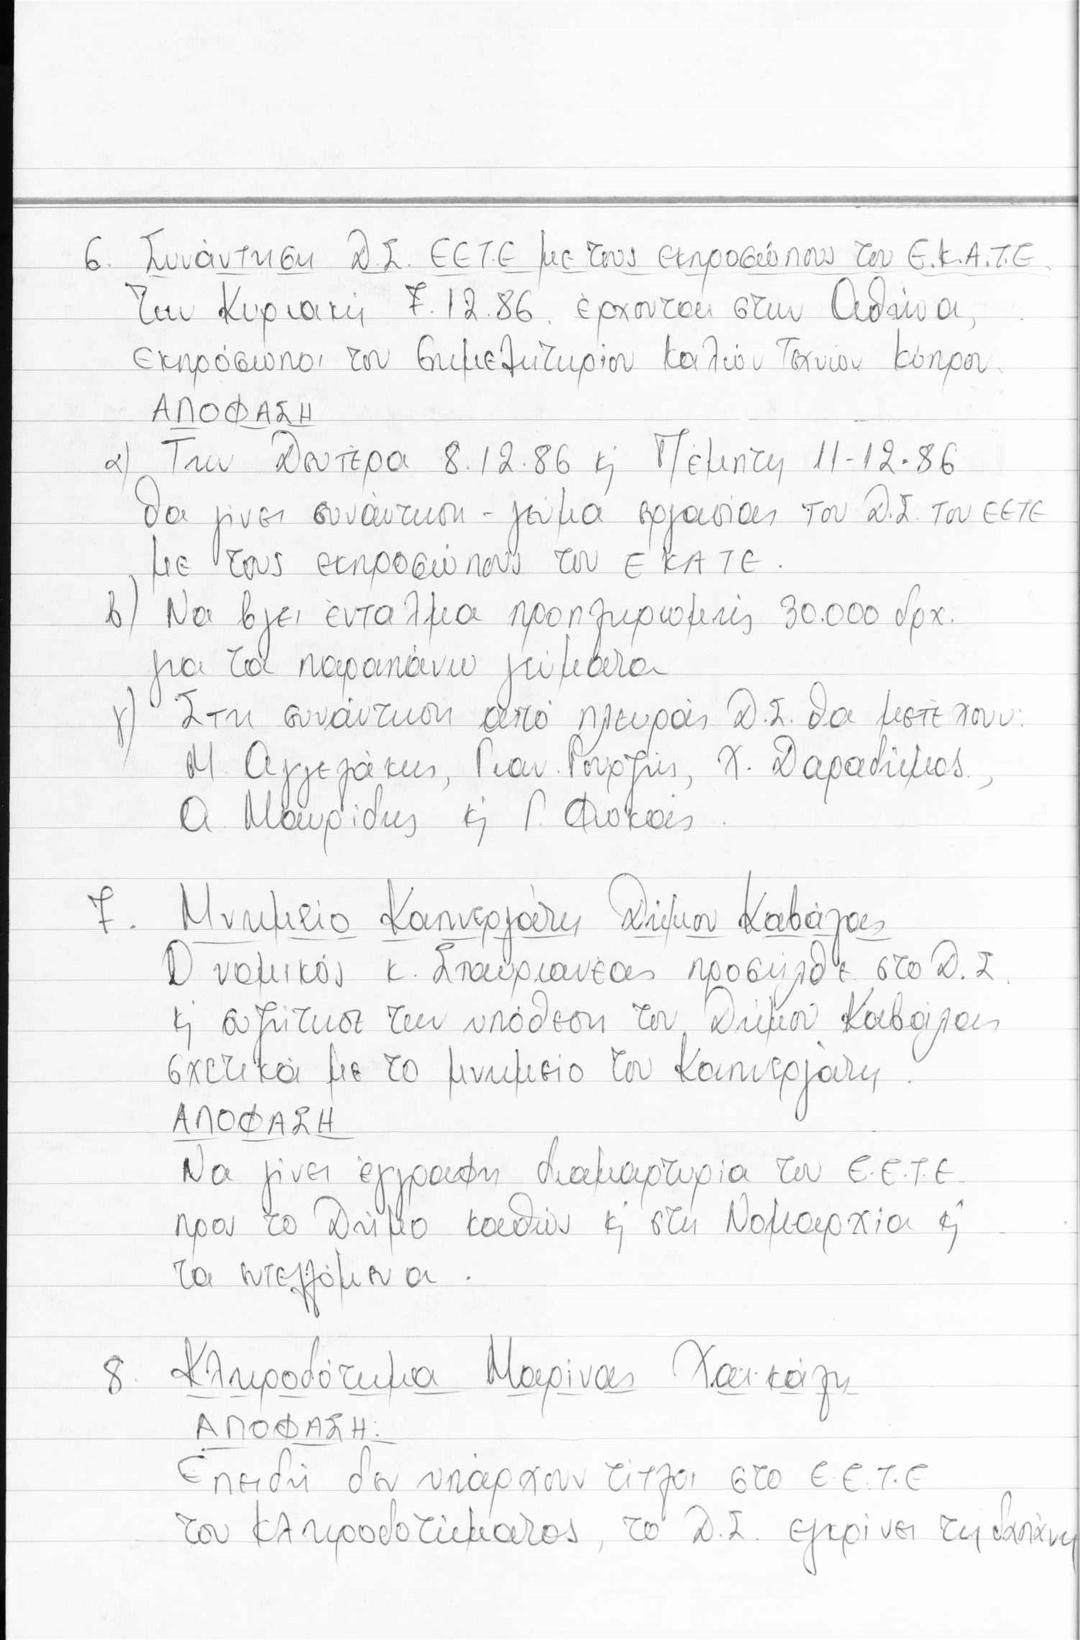 6. Συνάντηση Δ.Σ. ΕΕΤΕ με τους εκπροσώπους του Ε.Κ.Α.ΤΕ.
Την Κυριακή 7.12.86. έρχονται στην Αθήνα,
εκπρόσωποι του Επιμελητηρίου Καλών Τεχνών Κύπρου.
ΑΠΟΦΑΣΗ
α) Την Δευτέρα 8.12.86 κ́ Πέμπτη 11-12-86
θα γίνει συνάντηση - γεύμα εργασίας του Δ.Σ. του ΕΕΤΕ
με τους εκπροσώπους του ΕΚΑΤΕ.
β) Να βγει ένταλμα προπληρωμής 30.000 δρχ.
για τα παραπάνω γεύματα
γ) Στη συνάντηση από πλευράς Δ.Σ. θα μετέχουν:
Μ. Αγγελάκης, Γιαν. Γουρζής, Χ. Δαραδήμος,
Α. Μαυρίδης κ́ Γ. Φωκάς.
7. Μνημείο Καπνεργάτη Δήμου Καβάλας
Ο νομικός κ. Σταυριανέας προσήλθε στο Δ.Σ.
κ́ συζήτησε την υπόθεση του Δήμου Καβάλας
σχετικά με το μνημείο του Καπνεργάτη.
ΑΠΟΦΑΣΗ
Να γίνει έγγραφη διαμαρτυρία του Ε.Ε.Τ.Ε
προς το Δήμο καθώς κ́ στη Νομαρχία κ́
τα εντελλόμενα.
8. Κληροδότημα Μαρίνας
ΑΠΟΦΑΣΗ:
Επειδή δεν υπάρχουν τίτλοι στο Ε.Ε.Τ.Ε
του κληροδοτήματος, το Δ.Σ. εγκρίνει τη δαπάνη